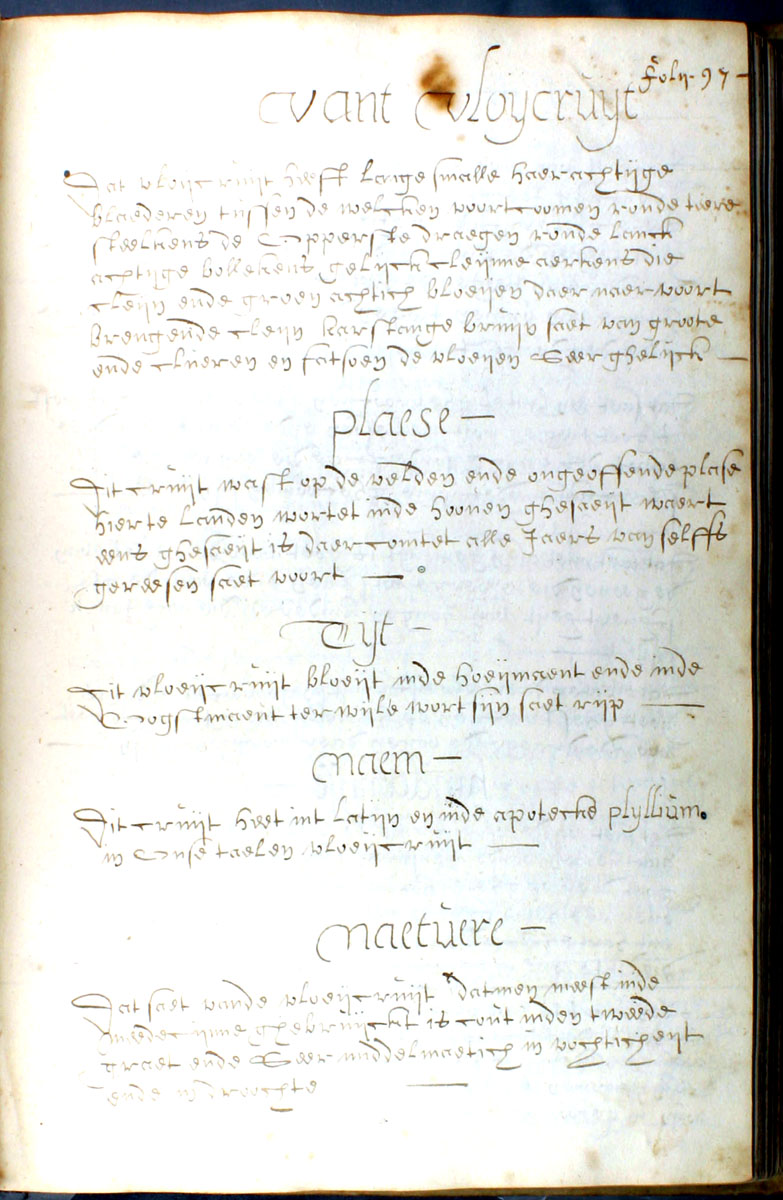 Folij. 97
Vant vloijcruijt
Dat vloijcruijt heeft lange smalle haerachtijge
blaederen tussen de welcken voortcoomen ronde teere
steelkens de Opperste draegen ronde lanck
achtijge bollekens gelijck cleijnne aerkens die
cleijn ende groen achtich bloeijen daer naer voort
brengende cleijn kars lange bruijn saet van groote
ende clueren en fatsoen de vloeijen Seer ghelijck
plaese
Dit cruijt wast op de velden ende ongeoffende plase
hier te landen wortet inde hooven ghesaeijt waert
eens ghesaeijt is daer comtet alle Jaers van selffs
gereesen saet voort
Tijt
Dit vloeijcruijt bloeijt inde hoeijmaent ende inde
Oogstmaent terwijle wort sijn saet rijp
naem
Dit cruijt heet int latijn en inde apotecke plyllium.
in Onse taelen vloeijcruijt
naetuere
Dat saet vande vloeijcruijt datmen meest inde
meedecijnne ghebruijckt is cout inden tweede
graet ende Seer middelmaetich in vochticheijt
ende in droochte